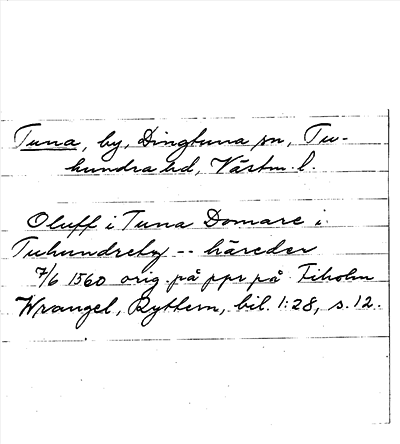 Tuna, by, Dingtuna sn, Tu-
hundra hd, Västm. l.
Oluff i Tuna Domare i
Tuhundretz -- häreder
7/6 1560 orig. på ppr på Tiholm
Wrangel, Ryttern, bil. 1:28, s. 12.